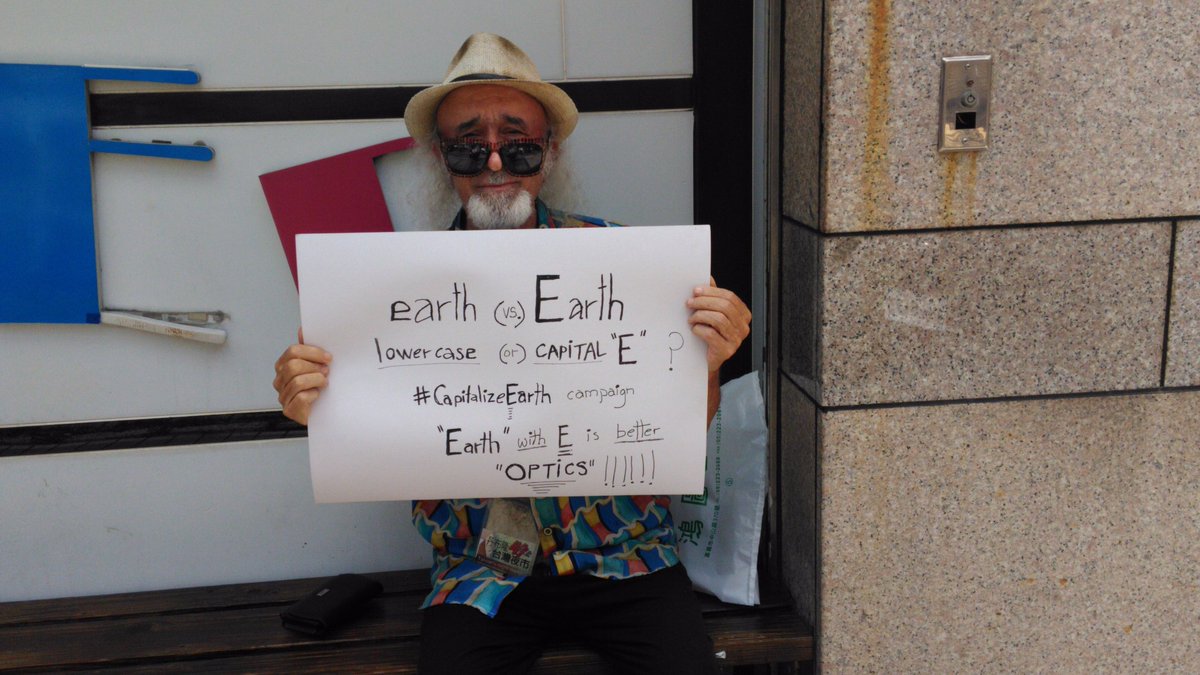 earth (vs.) Earth
lowercase (or) CAPITAL "E" ?
#CapitalizeEarth campaign
"Earth" with E is better
"OPTICS" !!!!!!
台灣夜市
鴻圖